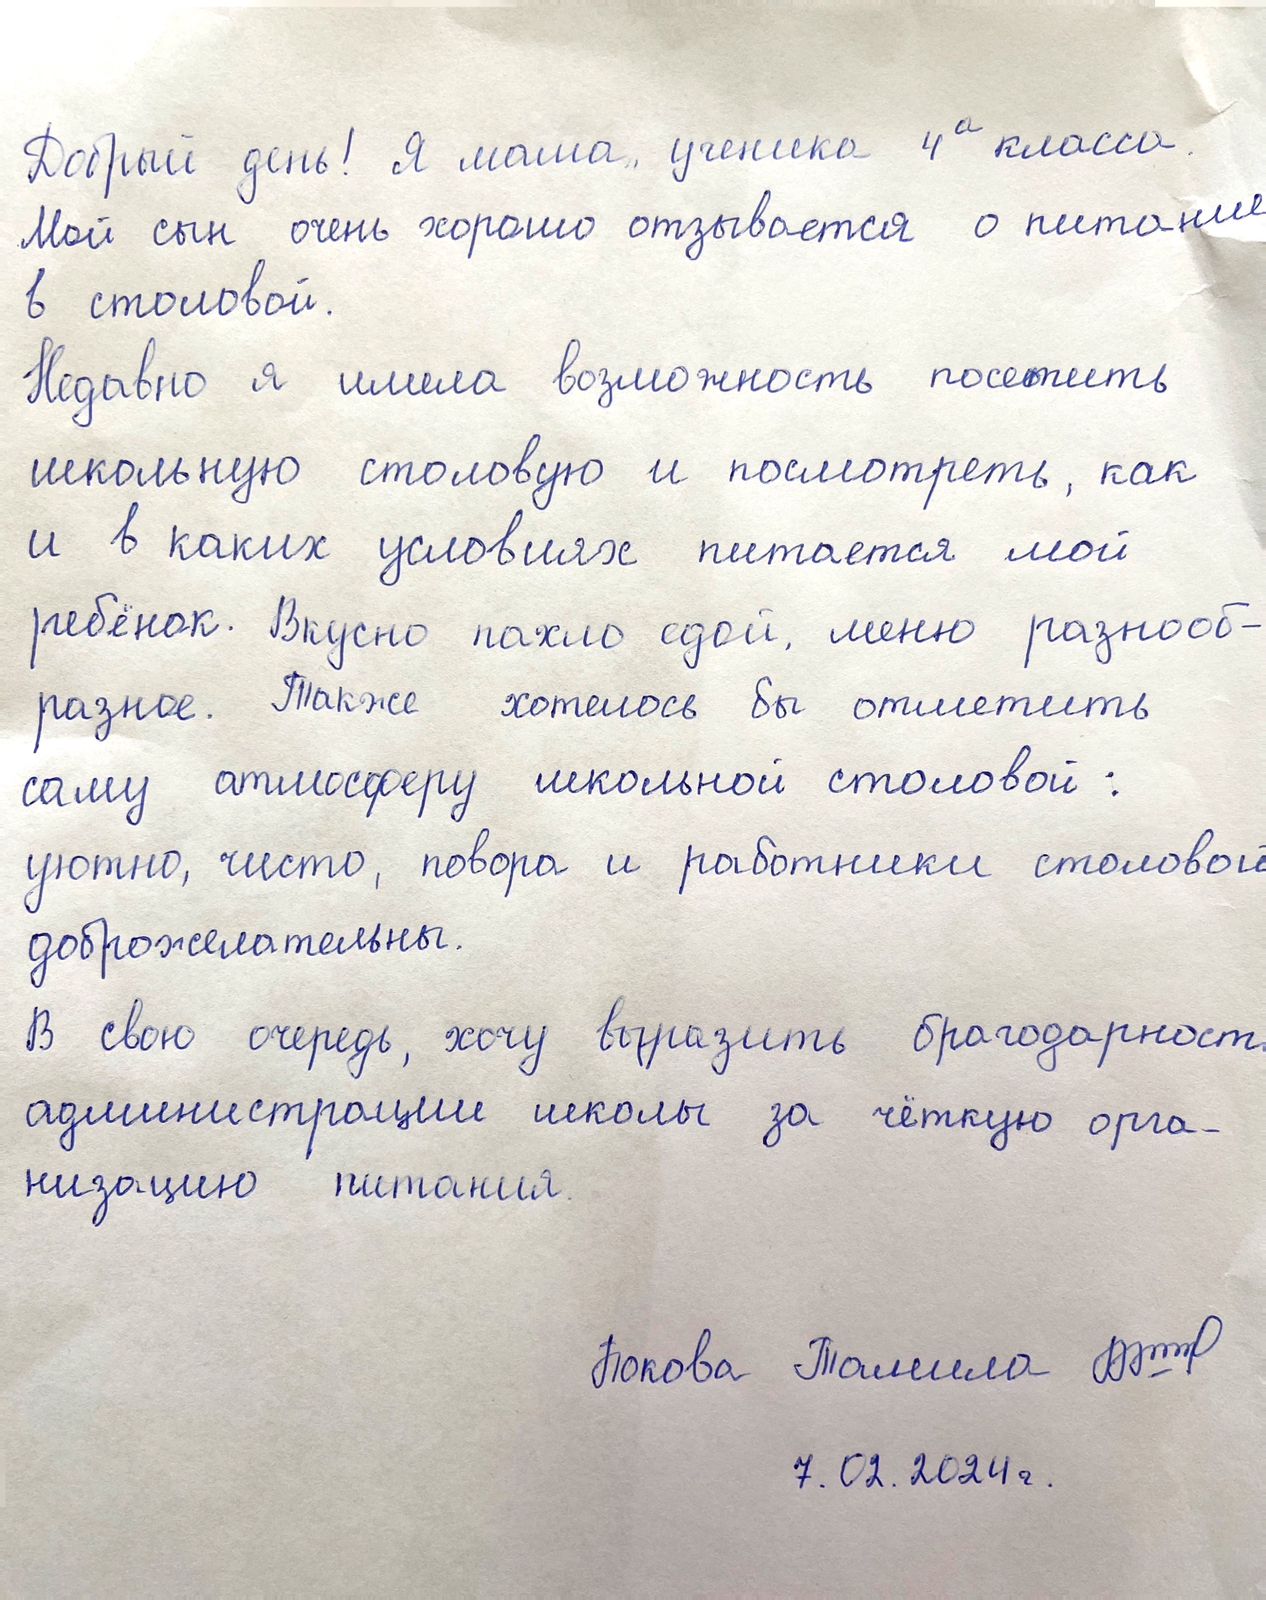 Добрый день! Я мама ученика 4а класса.
Мой сын очень хорошо отзывается о питание
в столовой.
Недавно я имела возможность посетить
школьную столовую и посмотреть, как
и в каких условиях питается мой
ребёнок. Вкусно пахло едой, меню разнооб-
разное. Также хотелось бы отметить
саму атмосферу школьной столовой:
уютно, чисто, повора и работники столовой
доброжелательны.
В свою очередь, хочу выразить благодарность
администрации школы за чёткую орга-
низацию питания.
Бокова Тамила
7.02.2024г.